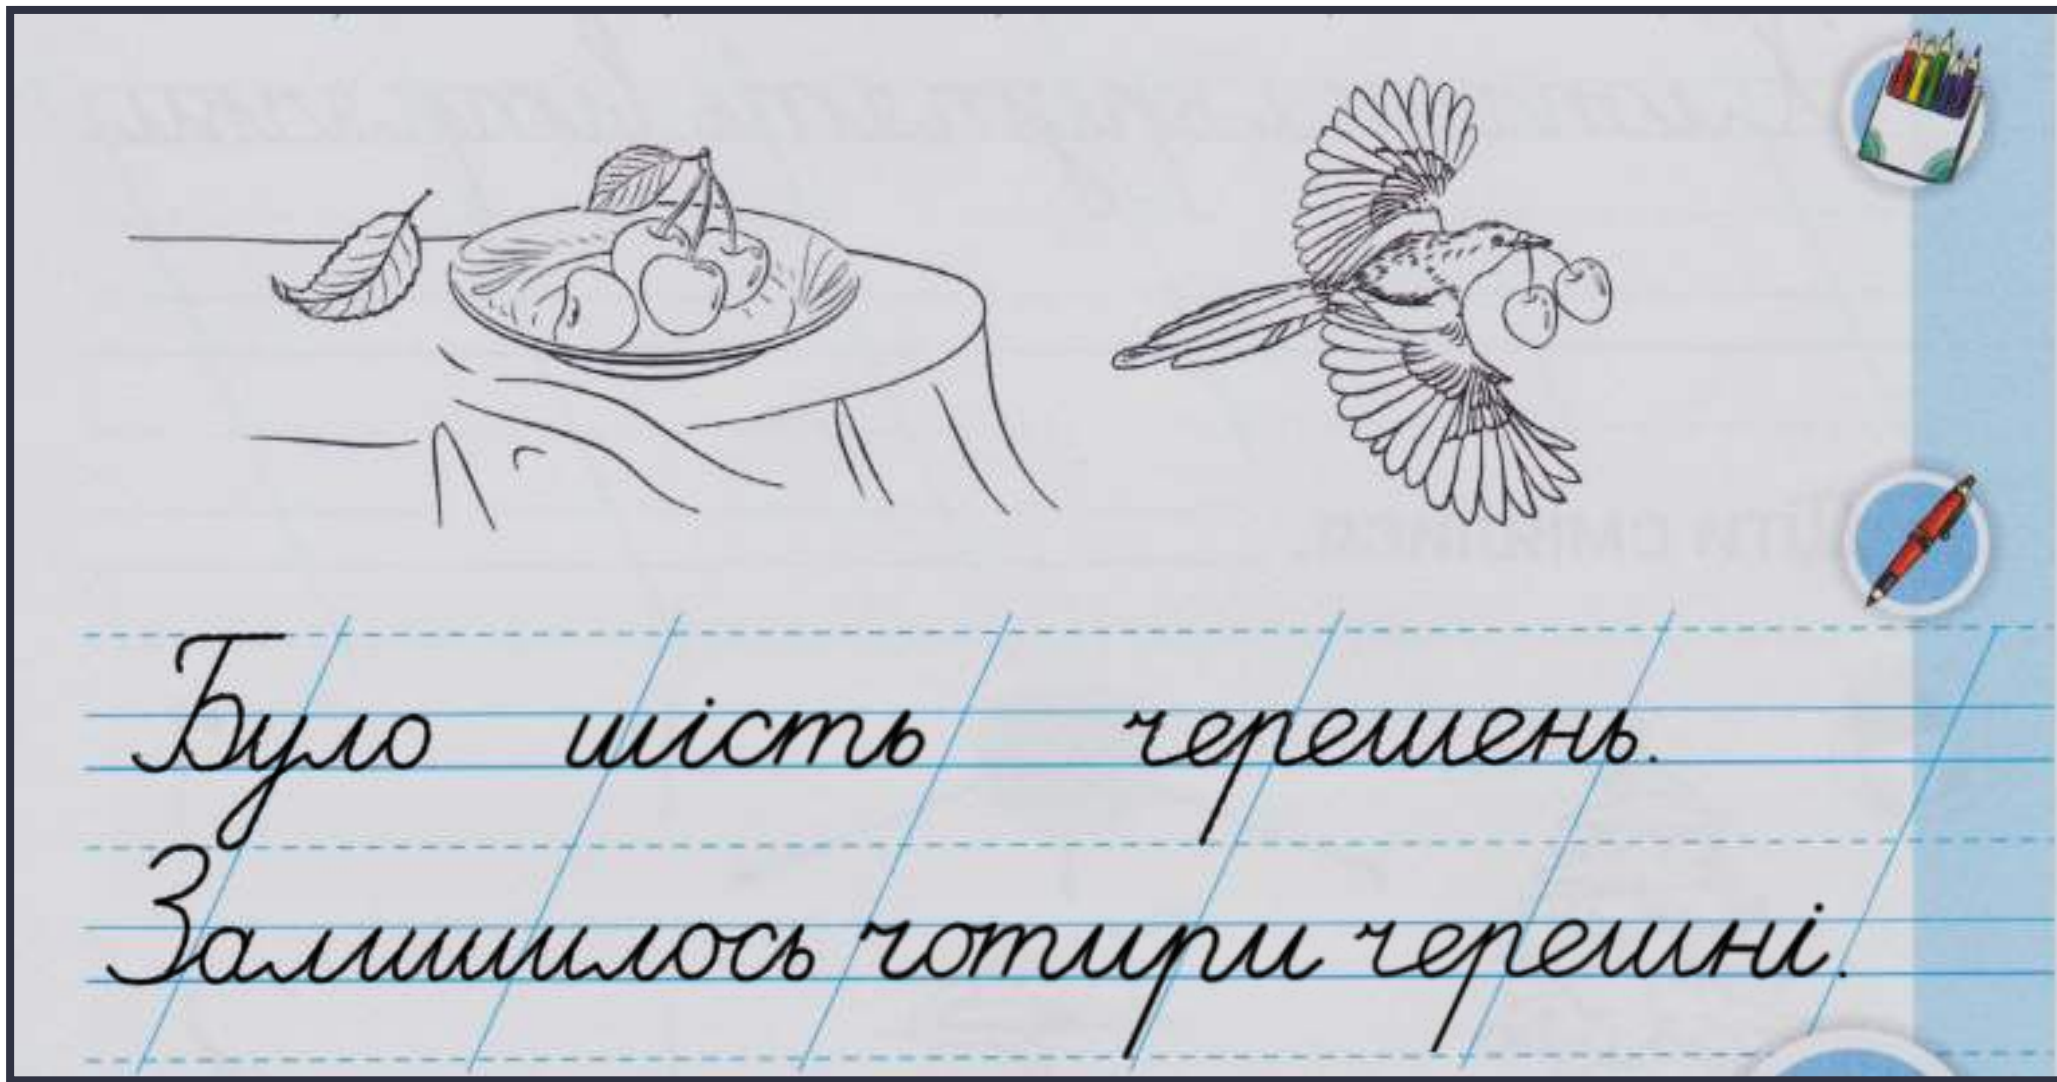 Було шість черешень.
Залишилось чотири черешні.